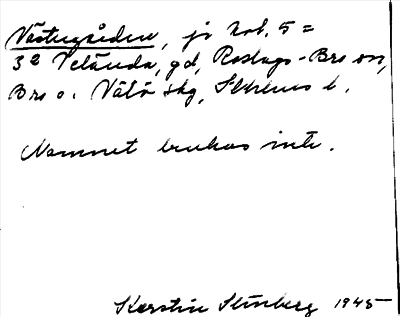 Västergården, jr kob. 5 =
3² Velända, gd, Roslags-Bro sn,
Bro o. Vätö skg, Sthlms l.
Namnet brukas inte.
Kerstin Stenberg 1945